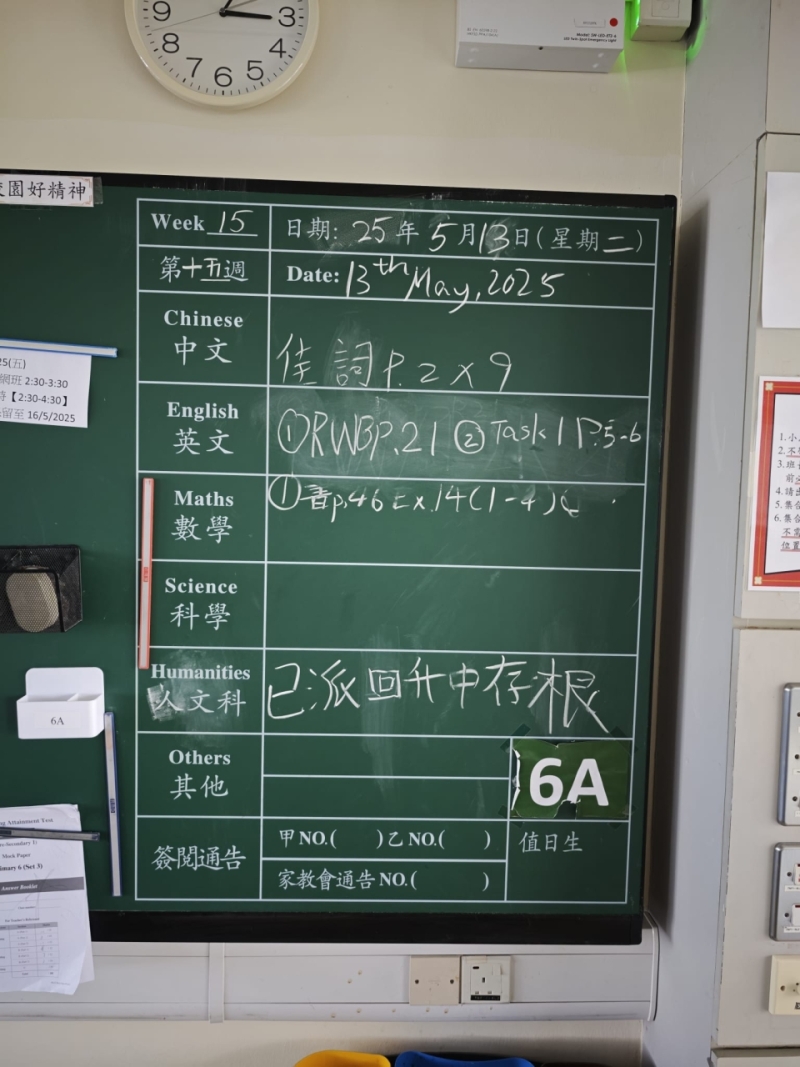 9 3 8 4 7 6 5
園好精神
Week 15 日期: 25年5月13日(星期二)
第十五週 Date: 13th May, 2025
Chinese
中文 佳詞 P.2 x 9
English
英文 ①RWBP.21 ②Task 1 P.5-6
Maths
數學 ① p.46 Ex.14(1-4)
Science
科學
Humanities
人文科 已派回升中存根
Others
其他
6A
簽閱通告 甲NO.( )乙NO.( ) 值日生
家教會通告NO.( )
25(五)
網班 2:30-3:30
【2:30-4:30】
留至 16/5/2025
6A
Attainment Test
Mock Paper
Primary 6 (Set 3)
Answer Booklet
1.小
2.不
3.班
前
4.請
5.集合
6.集合
不需
位置